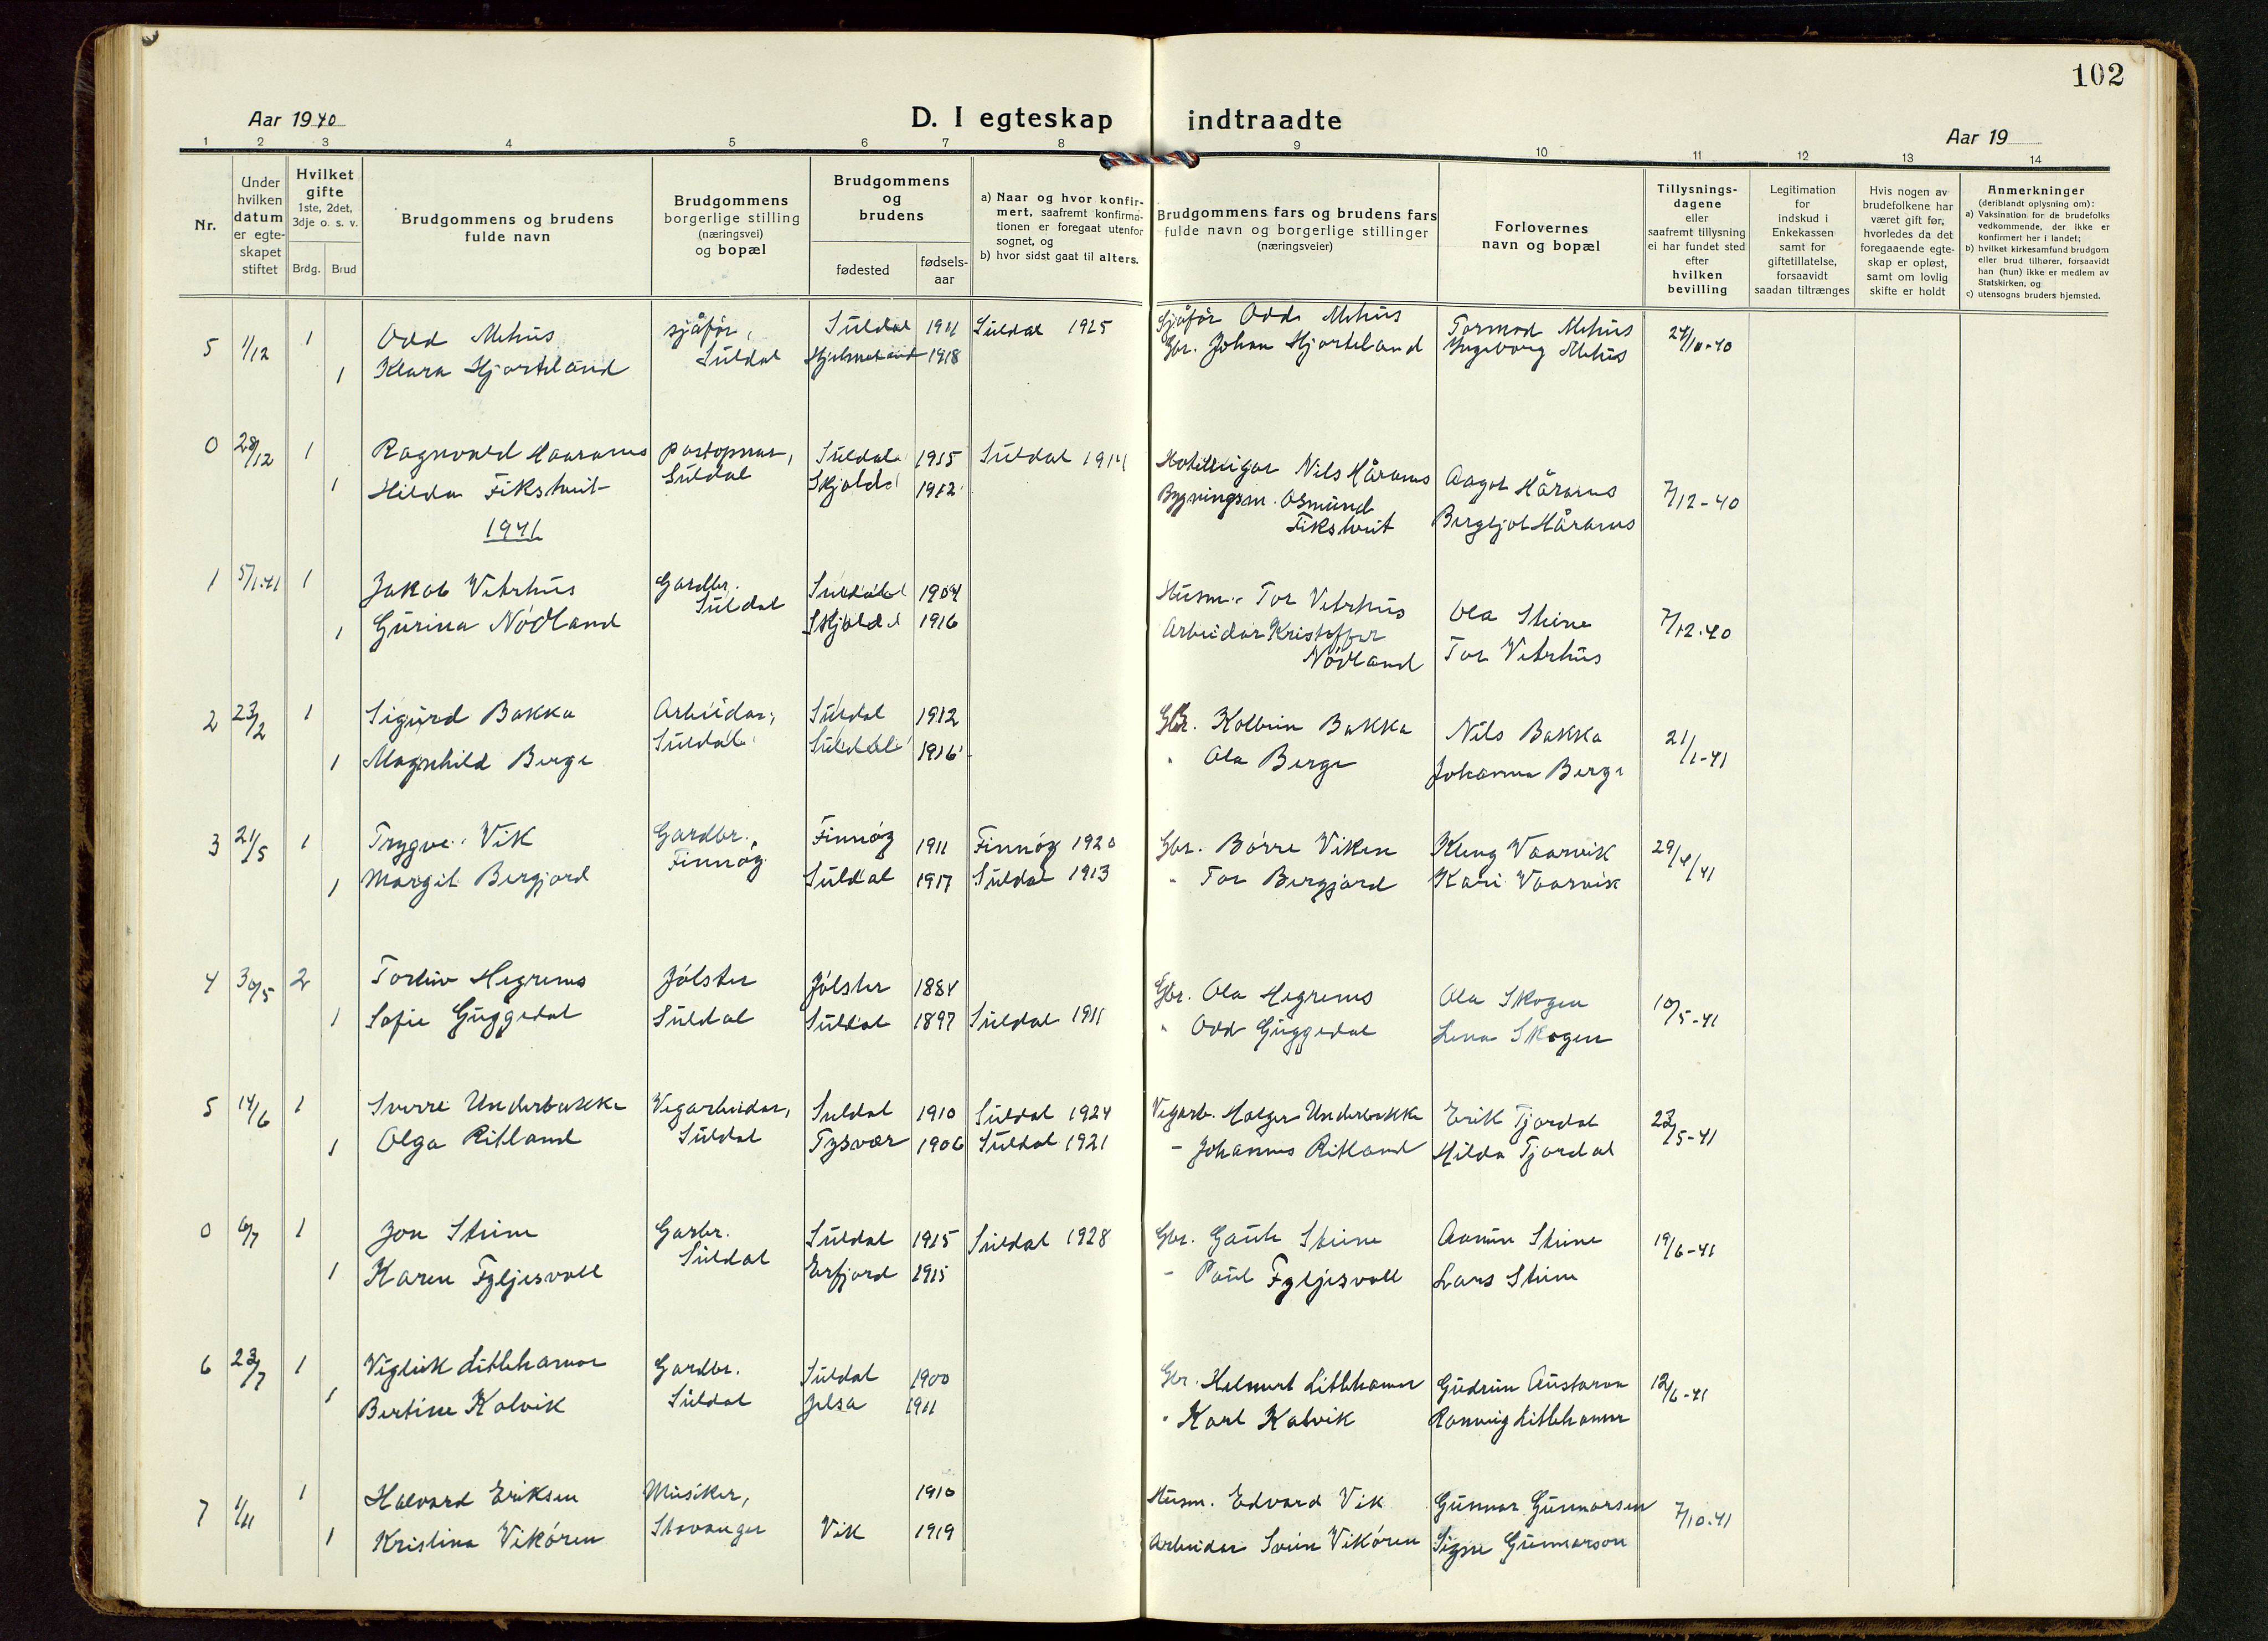 102
Aar 1940
D. I egteskap indtraadte
Aar 19
1 2 3 4 5 6 7 8 9 10 11 12 13 14
Nr.
Under hvilken datum er egteskapet stiftet
Hvilket gifte 1ste, 2det, 3dje o. s. v.
Brdg. Brud
Brudgommens og brudens fulde navn
Brudgommens borgerlige stilling (næringsvei) og bopæl
Brudgommens og brudens
fødested
fødsels-aar
a) Naar og hvor konfirmert, saafremt konfirmationen er foregaat utenfor sognet, og
b) hvor sidst gaat til alters.
Brudgommens fars og brudens fars fulde navn og borgerlige stillinger (næringsveier)
Forlovernes navn og bopæl
Tillysningsdagene eller saafremt tillysning ei har fundet sted efter hvilken bevilling
Legitimation for indskud i Enkekassen samt for giftetillatelse, forsaavidt saadan tiltrænges
Hvis nogen av brudefolkene har været gift før, hvorledes da det foregaaende egteskap er opløst, samt om lovlig skifte er holdt
Anmerkninger (deriblandt oplysning om):
a) Vaksination for de brudefolks vedkommende, der ikke er konfirmert her i landet;
b) hvilket kirkesamfund brudgom eller brud tilhører, forsaavidt han (hun) ikke er medlem av Statskirken, og
c) utensogns bruders hjemsted.
5 1/12 1 Odd Mehus sjåfør, Suldal 1911 Suldal 1925 Sjåfør Odd Mehus Tormod Mehus 24/11-40
1 Klara Hjorteland Suldal Hjelmeland 1918 Gbr. Johan Hjorteland Ingeborg Mehus
0 28/12 1 Ragnvald Haaranes postopnar, Suldal 1915 Suldal 1914 Hotelleigar Nils Håranes Aagot Håranes 7/12-40
1 Hilda Fikstveit Suldal Skjold 1912 Bygningsm. Osmund Fikstveit Bergljot Håranes
1941
1 5/1.41 1 Jakob Vetrhus Gardbr. Suldal 1904 Husm. Tor Vetrhus Ola Steine 7/12.40
1 Gurina Nødland Suldal Skjold 1916 Arbeidar Kristoffer Nødland Tor Vetrhus
2 23/2 1 Sigurd Bakka Arbeidar, Suldal 1912 Gbr. Kolbein Bakka Nils Bakka 21/1-41
1 Magnhild Berge Suldal Suldal 1916 " Ola Berge Johanna Berge
3 21/5 1 Trygve Vik Gardbr., Finnøy 1911 Finnøy 1920 Gbr. Børre Viken Kleng Vaarvik 29/4/41
1 Margit Bergjord Finnøy Suldal 1917 Suldal 1913 " Tor Bergjord Kari Vaarvik
4 30/5 2 Torleiv Hegrenes Jølster Jølster 1884 Gbr. Ola Hegrenes Ola Skogen 10/5-41
1 Sofie Guggedal Suldal Suldal 1897 Suldal 1911 " Odd Guggedal Lena Skogen
5 14/6 1 Sverre Underbakke Vegarbeidar, Suldal 1910 Suldal 1924 Vegarb. Holger Underbakke Erik Tjordal 23/5-41
1 Olga Ritland Suldal Tysvær 1906 Suldal 1921 - Johannes Ritland Hilda Tjordal
0 6/7 1 Jon Steine Garbr. Suldal 1915 Suldal 1928 Gbr. Gaute Steine Aamun Steine 19/6-41
1 Karen Fyljesvoll Suldal Erfjord 1915 - Paul Fyljesvoll Lars Steine
6 23/7 1 Vigleik Litlehamar Gardbr. Suldal 1900 Gbr. Helmert Litlehamar Gudrun Austaraa 12/6-41
1 Bertine Kalvik Suldal Jelsa 1911 " Karl Kalvik Ranveig Litlehamar
7 1/11 1 Halvard Eriksen Musiker, 1910 Husm. Edvard Vik Gunnar Gunnarsen 7/10.41
1 Kristina Vikøren Stavanger Vik 1919 Arbeidar Svein Vikøren Signe Gunnarson